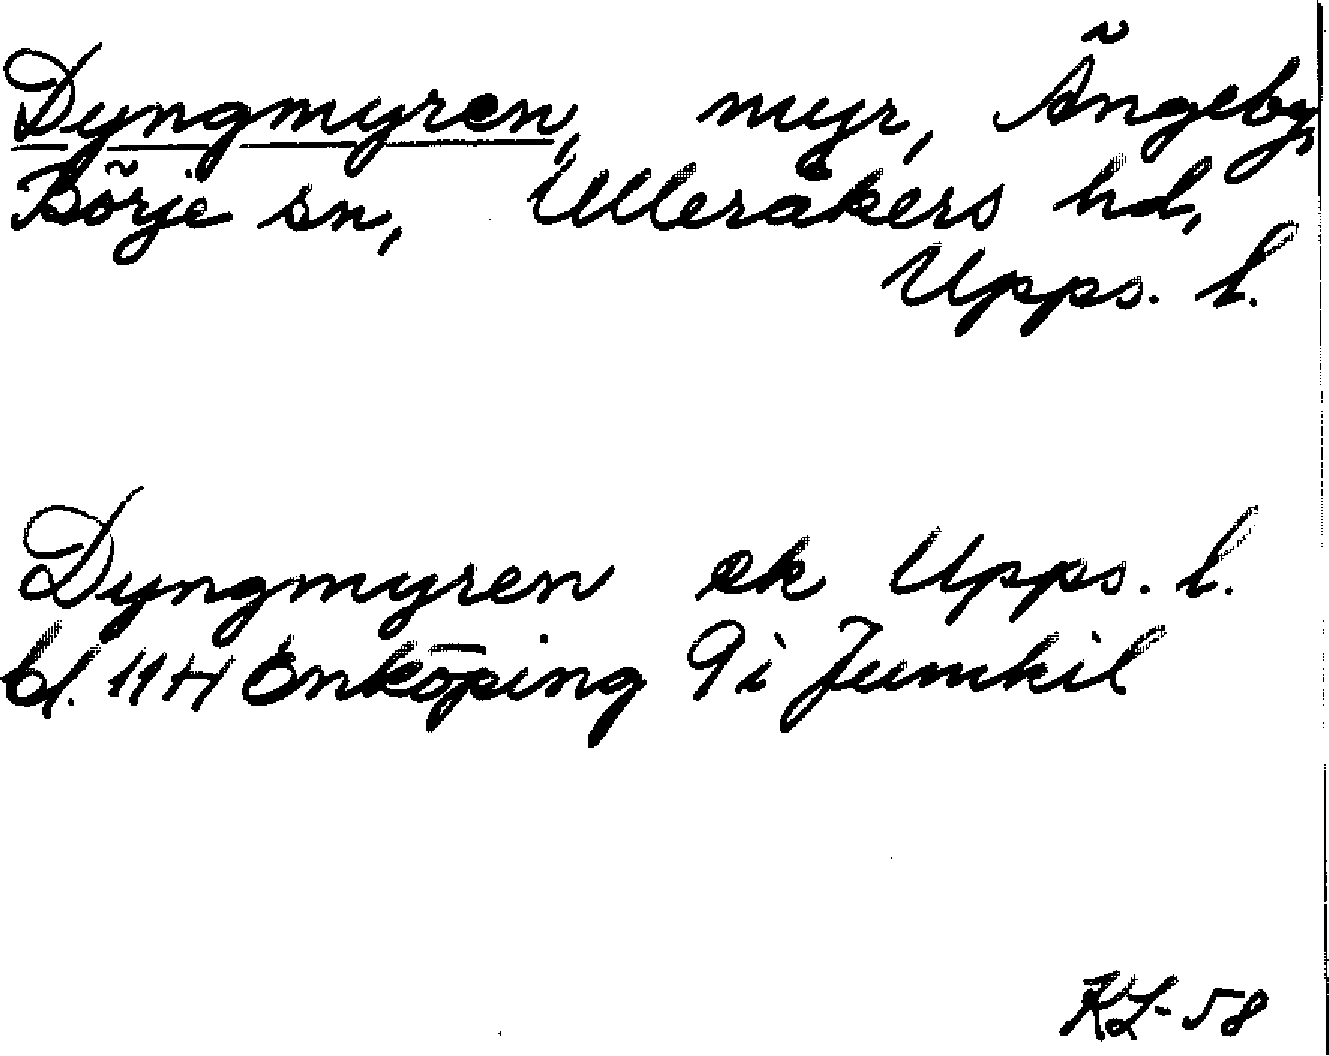 Dyngmyren, myr, Ängeby,
Börje sn, Ulleråkers hd,
Upps. l.
Dyngmyren ek Upps. l.
bl. 11 H Enköping 9i Jumkil
KL-58